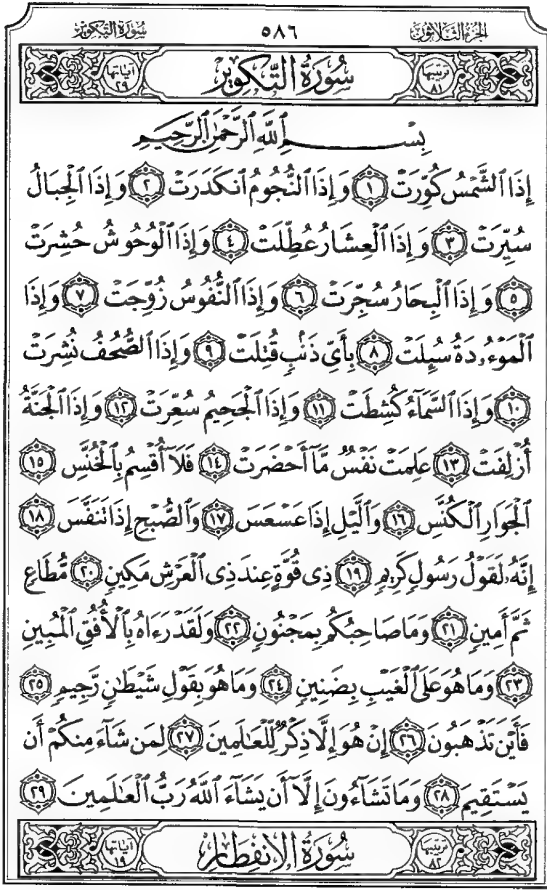 سورة التكوير ٥٨٦ الجزء الثلاثون
آياتها ٢٩ سُورَةُ التَّكْوِيرِ ترتيبها ٨١
بِسْمِ ٱللَّهِ ٱلرَّحْمَٰنِ ٱلرَّحِيمِ
إِذَا ٱلشَّمْسُ كُوِّرَتْ ١ وَإِذَا ٱلنُّجُومُ ٱنكَدَرَتْ ٢ وَإِذَا ٱلْجِبَالُ
سُيِّرَتْ ٣ وَإِذَا ٱلْعِشَارُ عُطِّلَتْ ٤ وَإِذَا ٱلْوُحُوشُ حُشِرَتْ
٥ وَإِذَا ٱلْبِحَارُ سُجِّرَتْ ٦ وَإِذَا ٱلنُّفُوسُ زُوِّجَتْ ٧ وَإِذَا
ٱلْمَوْءُۥدَةُ سُئِلَتْ ٨ بِأَىِّ ذَنۢبٍ قُتِلَتْ ٩ وَإِذَا ٱلصُّحُفُ نُشِرَتْ
١٠ وَإِذَا ٱلسَّمَآءُ كُشِطَتْ ١١ وَإِذَا ٱلْجَحِيمُ سُعِّرَتْ ١٢ وَإِذَا ٱلْجَنَّةُ
أُزْلِفَتْ ١٣ عَلِمَتْ نَفْسٌ مَّآ أَحْضَرَتْ ١٤ فَلَآ أُقْسِمُ بِٱلْخُنَّسِ ١٥
ٱلْجَوَارِ ٱلْكُنَّسِ ١٦ وَٱلَّيْلِ إِذَا عَسْعَسَ ١٧ وَٱلصُّبْحِ إِذَا تَنَفَّسَ ١٨
إِنَّهُۥ لَقَوْلُ رَسُولٍ كَرِيمٍ ١٩ ذِى قُوَّةٍ عِندَ ذِى ٱلْعَرْشِ مَكِينٍ ٢٠ مُّطَاعٍ
ثَمَّ أَمِينٍ ٢١ وَمَا صَاحِبُكُم بِمَجْنُونٍ ٢٢ وَلَقَدْ رَءَاهُ بِٱلْأُفُقِ ٱلْمُبِينِ
٢٣ وَمَا هُوَ عَلَى ٱلْغَيْبِ بِضَنِينٍ ٢٤ وَمَا هُوَ بِقَوْلِ شَيْطَٰنٍ رَّجِيمٍ ٢٥
فَأَيْنَ تَذْهَبُونَ ٢٦ إِنْ هُوَ إِلَّا ذِكْرٌ لِّلْعَٰلَمِينَ ٢٧ لِمَن شَآءَ مِنكُمْ أَن
يَسْتَقِيمَ ٢٨ وَمَا تَشَآءُونَ إِلَّآ أَن يَشَآءَ ٱللَّهُ رَبُّ ٱلْعَٰلَمِينَ ٢٩
آياتها ١٩ سُورَةُ الِانفِطَارِ ترتيبها ٨٢